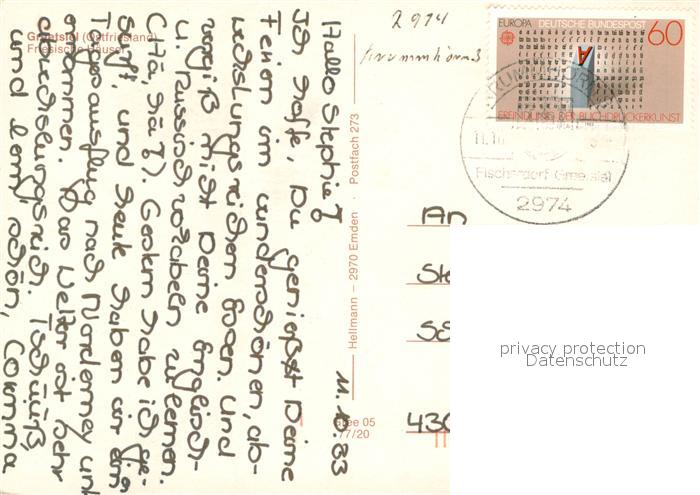 Greetsiel (Ostfriesland)
Friesische Häuser
11.10.83
Hallo Stephie!
Ich hoffe, Du genießt Deine
Ferien im wunderschönen, ab-
wechslungsreichen Essen. Und
vergiß nicht Deine Englisch-
u. Russischvokabeln zu lernen.
(Hä, hä!). Gestern habe ich ge-
surft, und heute haben wir ein
Tagesausflug nach Norderney un
Das Wetter ist sehr
abwechslungsreich. Tschüüß,
und lern schön,
Hellmann – 2970 Emden · Postfach 273
Gree 05
77/20
2974
Krummhörn 3
EUROPA DEUTSCHE BUNDESPOST 60
ERFINDUNG DER BUCHDRUCKERKUNST
KRUMMHÖRN
11.10
Fischerdorf Greetsiel
2974
An
Ste
430
privacy protection
Datenschutz